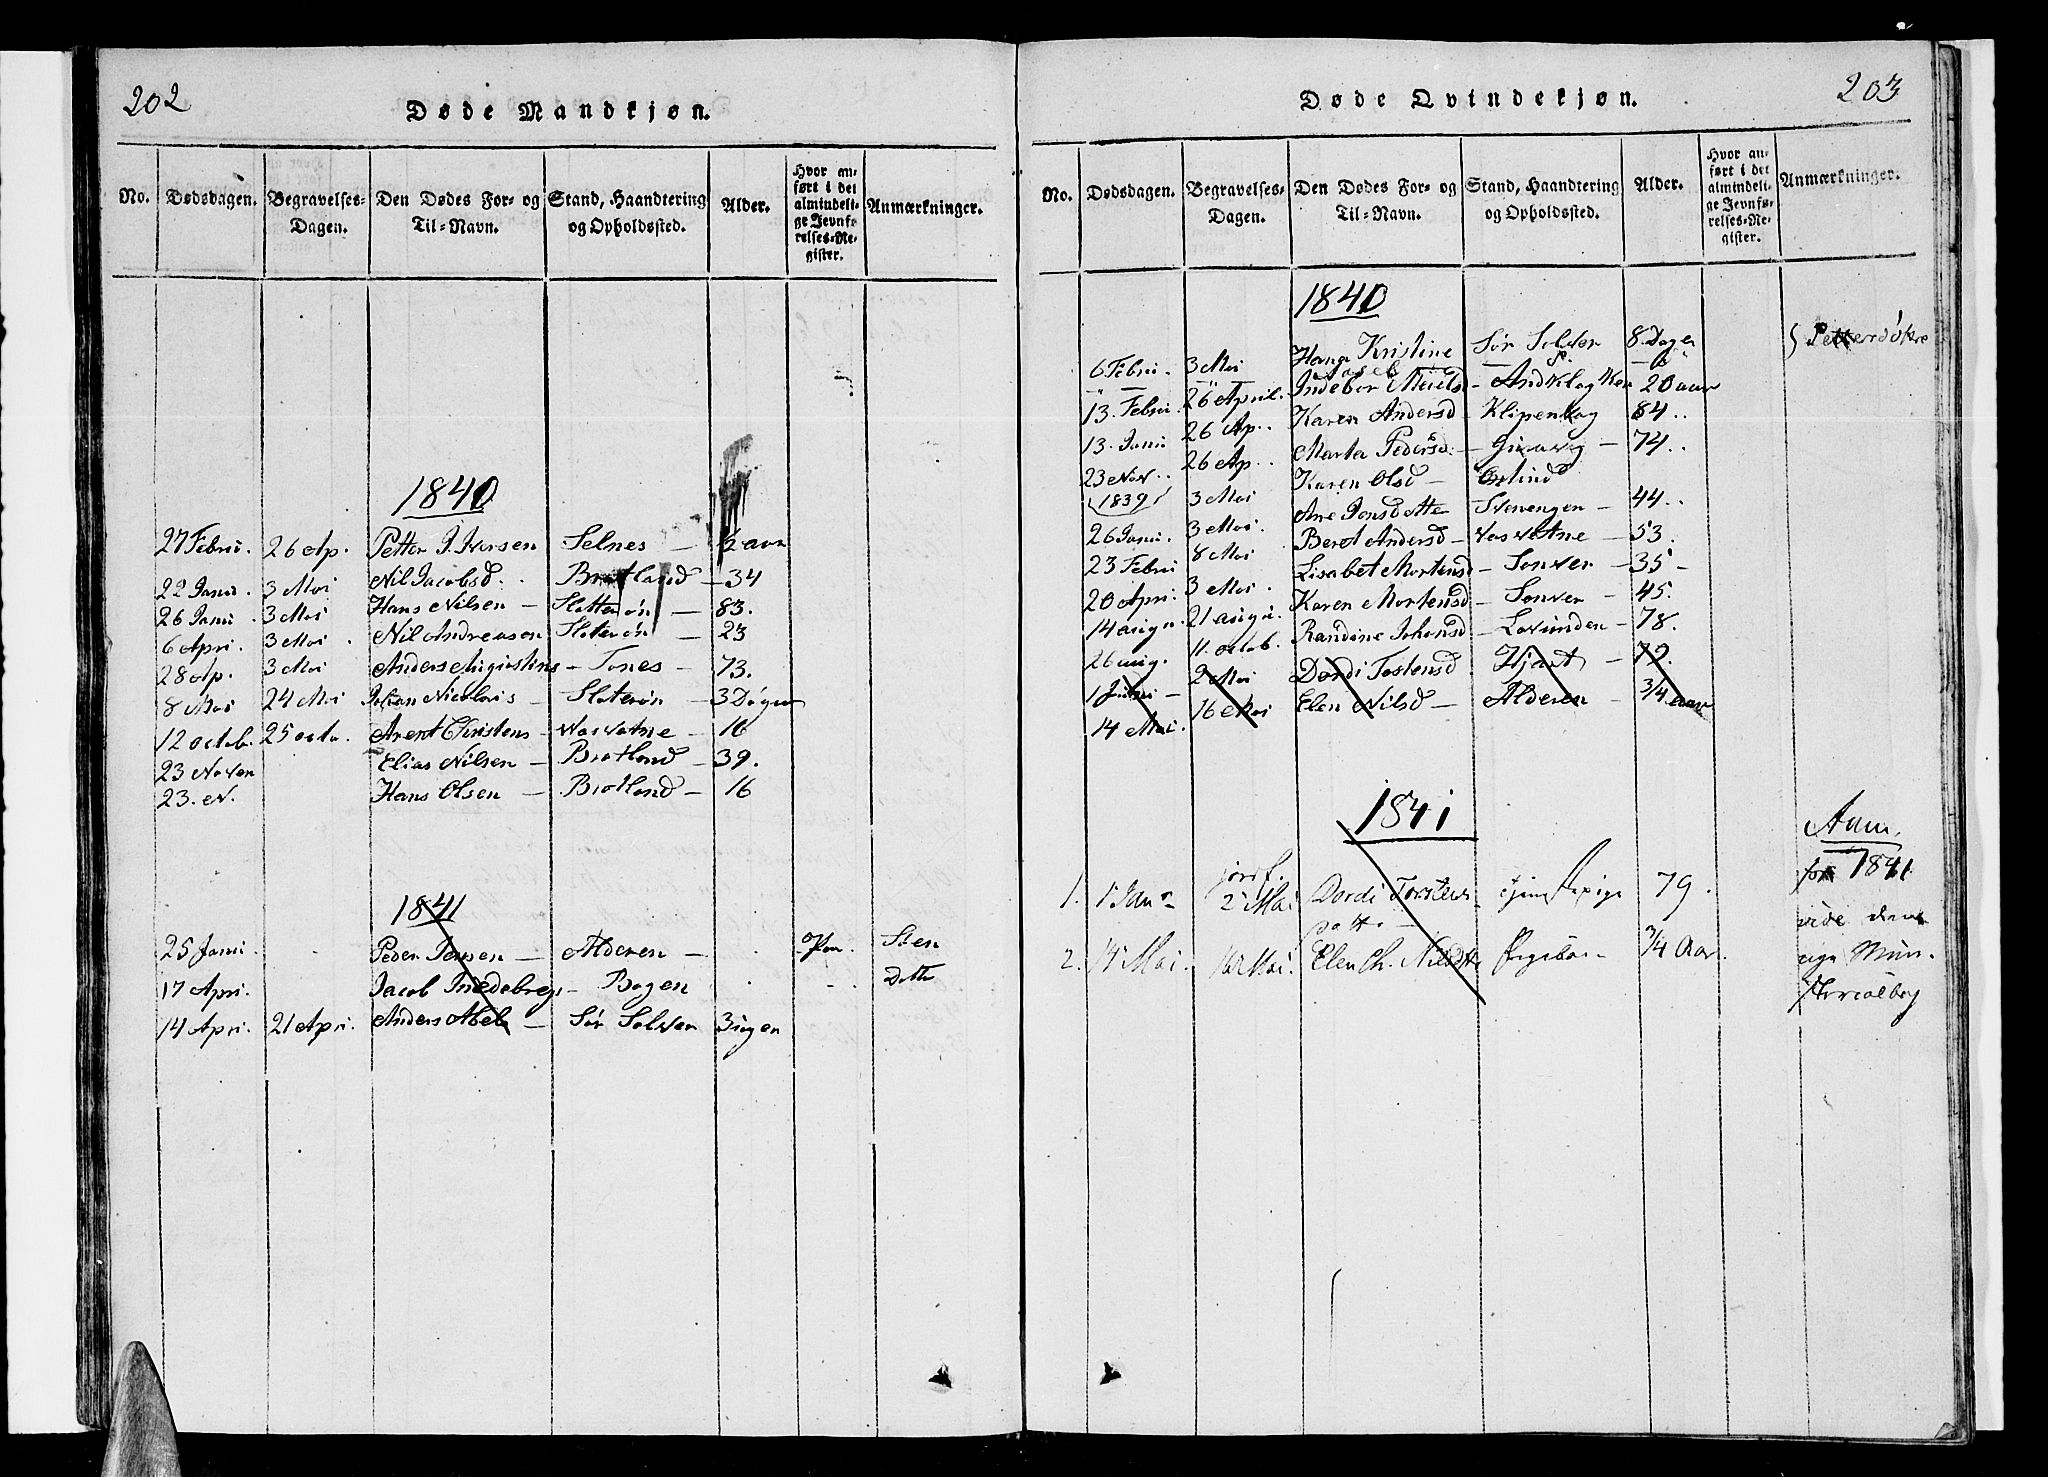 202
Døde Mandkjøn.
No. Dødsdagen. Begravelses-Dagen. Den Dødes For- og Til-Navn. Stand, Haandtering og Opholdssted. Alder. Hvor anført i det almindelige Jevnførelses-Register. Anmærkninger.
1840
27 Febru. 26 Ap. Petter J. Iversen Selnes — 1/2 aar
22 Janu. 3 Mai Nil Jacobsd. Bratland — 34
26 Janu. 3 Mai Hans Nilsen — Slotterøn — 83.
6 Apri. 3 Mai . Nil Andreasen Sloterøn — 23
28 Ap. 3 Mai Anders Augustins — Tones — 73.
8 Mai 24 Mai Johan Nicolais — Sloterøn — 3 Døgn
12 octob. 25 octo. Arent Christens — Vasvatne — 16
23 Noven Elias Nilsen — Bratland — 39.
23. N. Hans Olsen — Bratland — 16
1841
25 Janu. Peder Jensen — Alderen —
17 Apri. Jacob — Bogen Dette
14 Apri. 21 Apri. Anders Abel — Sør Solver 3 ugen
203
Døde Qvindekjøn.
No. Dødsdagen. Begravelses-Dagen. Den Dødes For- og Til-Navn. Stand, Haandtering og Opholdssted. Alder. Hvor anført i det almindelige Jevnførelses-Register. Anmærkninger.
1840
6 Febru. 3 Mai Hana Kristine Sør Solver 8 Dager
13. Febru. 26 April. Indebor — 20 aar
13. Janu 26 Ap. Karen Andersd — 84 ..
23 Nov. 26 Ap. Marta Pedersd — 74 ..
(1839) 3 Mai Karen Olsd —
26 Janu. 3 Mai. Ane Jonsdatte Stenengen — 44 ..
23 Febru 8 Mai Beret Andersd — Vasvatne — 53.
20 Apri. 3 Mai Lisabet Mortensd — Sonver — 35 —
14 augu. 21 augu. Karen Mortensd — Sonver — 45.
26 aug. 11. octob. Randine Johansd — Lovunden — 78.
1 2 Mai Dordi Tostensd Hjart — 79.
14 Mai. 16 Mai Elen Nilsd — Alderen — 3/4 aar
1841
Anm.
for 1841
1. 1 Jan 2 Mai Dordi Torstens 79.
datter —
2. 14 Mai. 16 Mai. Elen Ch. Nilsdtr 3/4 Aar.
vide